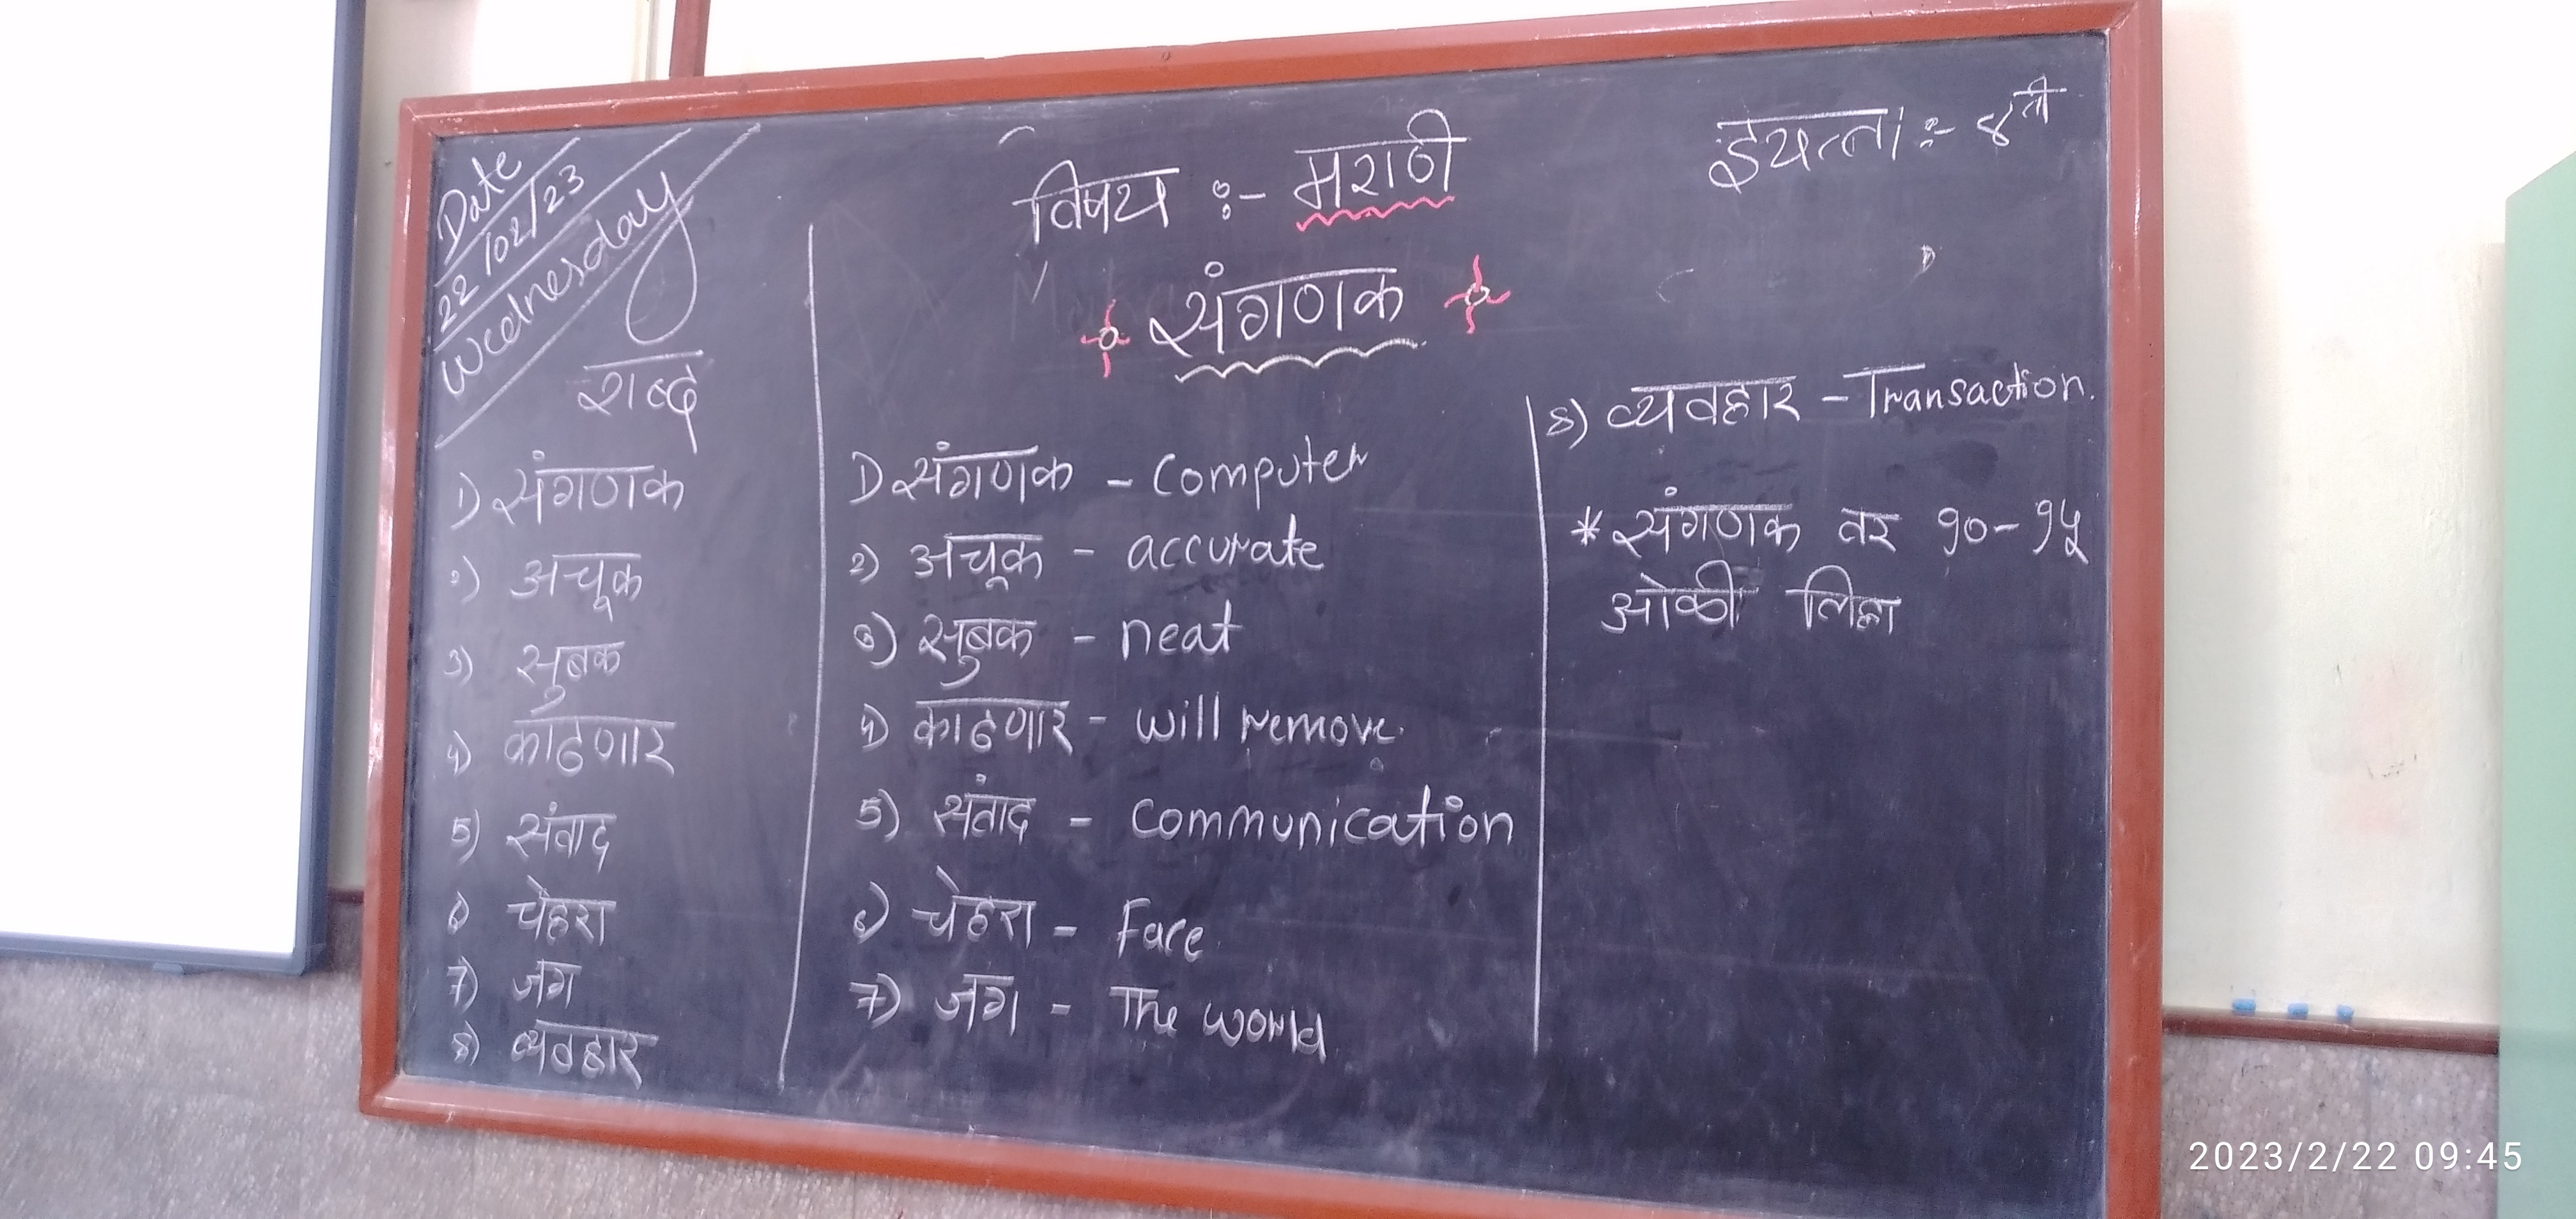 Date
22/02/23
Wednesday
विषय :- मराठी
इयत्ता :- ४ती
संगणक
शब्द
1) संगणक
2) अचूक
3) सुबक
4) काढणार
5) संवाद
6) चेहरा
7) जग
8) व्यवहार
1) संगणक - computer
2) अचूक - accurate
3) सुबक - neat
4) काढणार - will remove.
5) संवाद - communication
6) चेहरा - Face
7) जग - The world
8) व्यवहार - Transaction.
* संगणक वर १०-१५
ओळी लिहा
2023/2/22 09:45